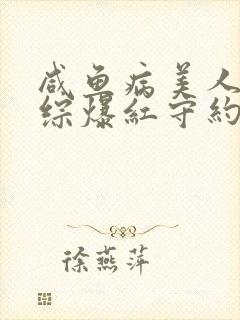 咸鱼病美人
综爆紅守約
徐燕萍